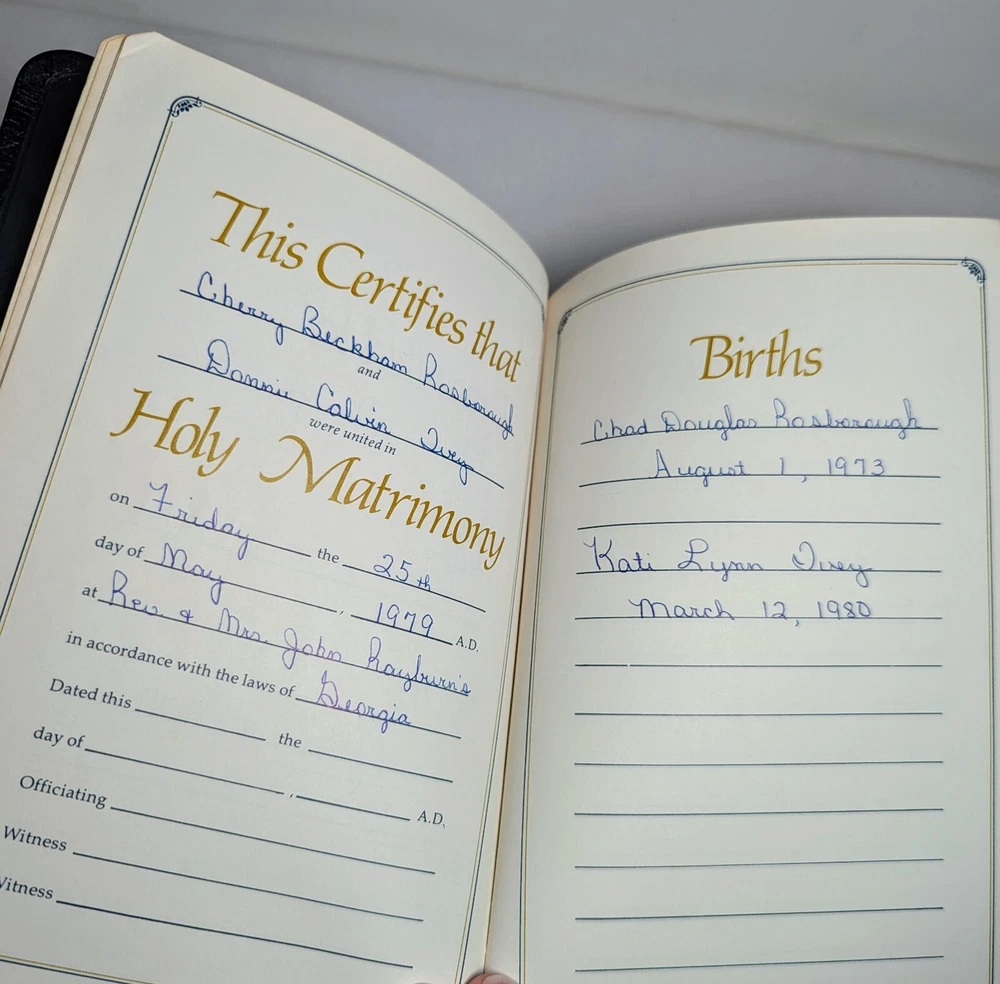 This Certifies that
Cherry Beckham Rosborough
and
Donnie Calvin Ivey
were united in
Holy Matrimony
on Friday the 25th
day of May, 1979 A.D.
at Rev & Mrs. John Rayburn's
in accordance with the laws of Georgia
Dated this the
day of , A.D.
Officiating
Witness
Witness
Births
Chad Douglas Rosborough
August 1, 1973
Kati Lynn Ivey
March 12, 1980